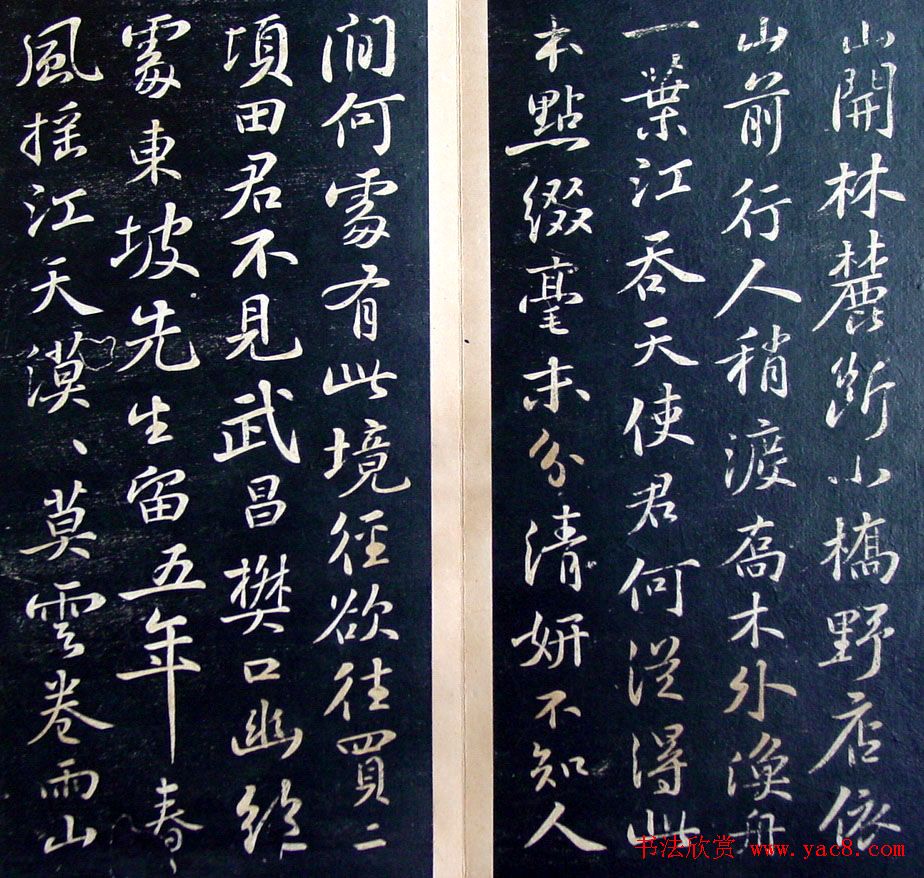 山開林麓斷小橋野店依
山前行人稍渡喬木外漁舟
一葉江吞天使君何從得此
本點綴毫末分清妍不知人
間何處有此境徑欲往買二
頃田君不見武昌樊口幽絕
處東坡先生留五年春
風搖江天漠、莫雲卷雨山
书法欣赏 www.yac8.com